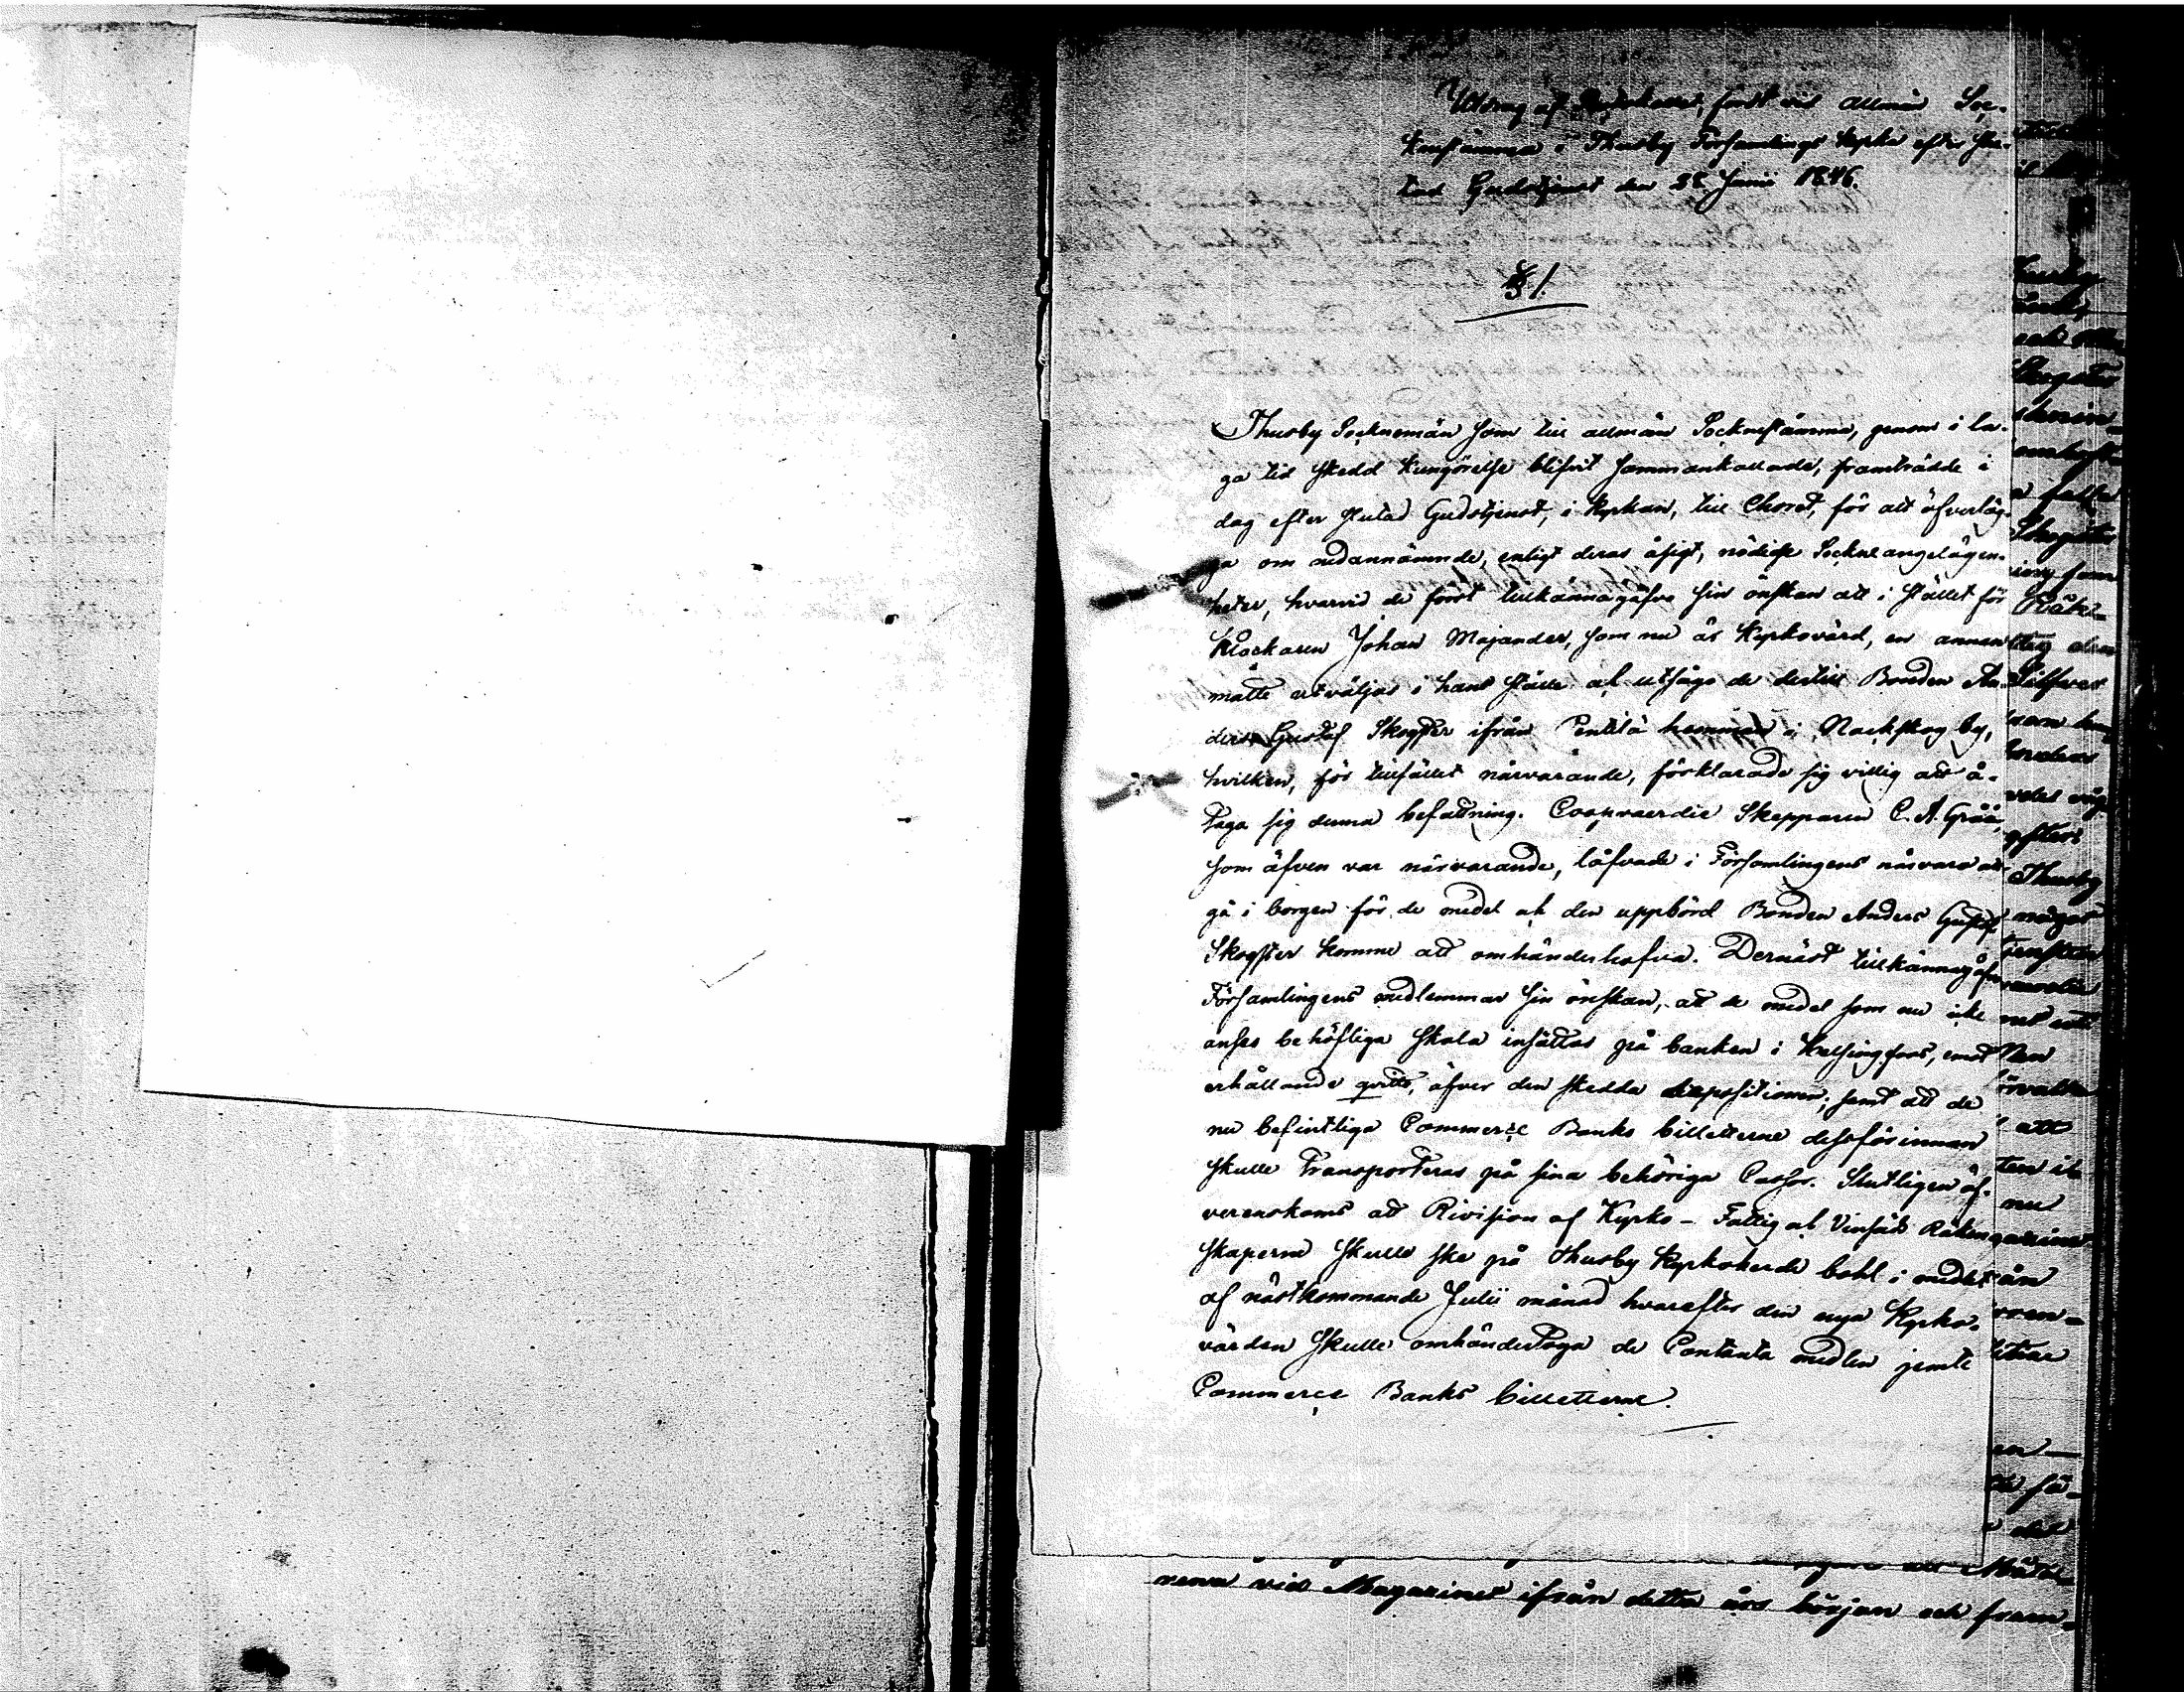 Utdrag af Protokollet, fördt vid allmän Soc-
kenstämma i Thusby Församlings Kyrka efter slu-
tad Gudstjenst den 28 Junii 1846.
§ 1.
Thusby Socknemän som till allmän Socknestämma, genom i la-
ga tid skedd Kungörelse blifvit sammankallade, framträdde i
dag efter slutad Gudstjenst, i Kyrkan, till Choret, för att öfverläg-
ga om nedannämnde, enligt deras åsigt, nödige Sockneangelägen-
heter, hvarvid de först tillkännagåfvo sin önskan att i stället för
Klockaren Johan Majander, som nu är Kyrkovärd, en annan
måtte utväljas i hans ställe och utsågo de dertill Bonden An-
ders Gustaf Skogster ifrån Pentilä hemman i Nackskog by,
hvilken, för tillfället närvarande, förklarade sig villig att å-
taga sig denna befattning. Coopvaerdie Skepparen C. A. Gråå,
som äfven var närvarande, låfvade i Församlingens närvaro att
gå i borgen för de medel och den uppbörd Bonden Anders Gustaf
Skogster komme att omhänderhafva. Dernäst tillkännagåfvo
Församlingens medlemmar sin önskan, att de medel som nu icke
anses behöfliga skola insättas på banken i Helsingfors, emot
erhållande qvitto, öfver den skedda depositionen; samt att de
nu befintliga Commerce Banks billetterne dessförinnan
skulle Transporteras på sina behöriga Cassor. Slutligen öf-
verenskoms att Rivision af Kyrko- Fattig och Vinsäds Räken
skaperna skulle ske på Thusby Kyrkoherde bohl i medlet
af nästkommande Julii månad hvarefter den nya Kyrko-
värden skulle omhändertaga de Contanta medlen jemte
Commerce Banks billetterne.
rerna vid Magazinet ifrån detta års början och fram-